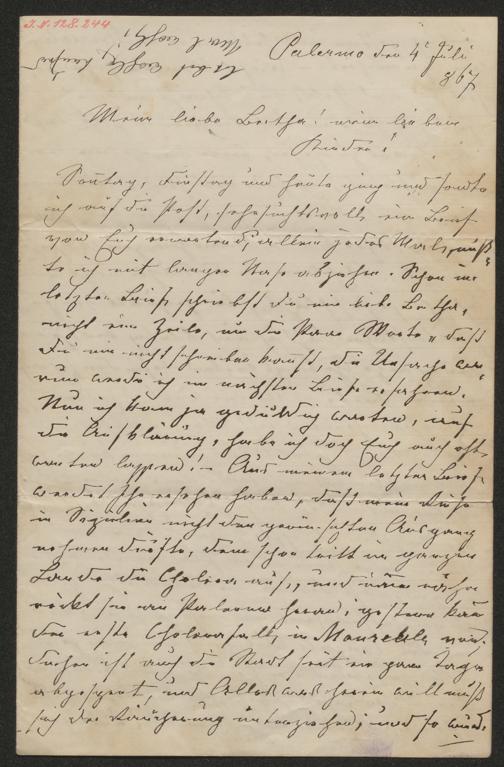 I.N. 128.244
Palermo den 4t Juli
867
Meine liebe Bertha! meine lieben
Kinder!
Sonntag, Dienstag und heute ging und sandte
ich auf die Post, sehnsuchtsvoll ein Brief
von Euch erwartend, allein jedes Mal muß
te ich mit langer Nase abziehen. Schon im
letzten Briefe schriebst du mir liebe Bertha,
nicht eine Zeile, nur die Paar Worte „daß
Du mir nicht schreiben kannst, die Ursache wa
rum werde ich im nächsten Briefe erfahren."
Nun ich kann ja geduldig warten, auf
die Aufklärung, habe ich doch Euch auch oft
warten lassen! – Aus meinem letzten Briefe
werdet Ihr ersehen haben, daß meine Reise
in Sizilien nicht den gewünschten Ausgang
nehmen dürfte, denn schon tritt im ganzen
Lande die Cholera auf, und immer näher
rückt sie an Palermo heran; gestern kam
der erste Cholerafall, in Monreale vor.
Daher ist auch die Stadt seit ein paar Tagen
abgesperrt, und Alles was herein will muß
sich der Räucherung unterziehen; und so wird